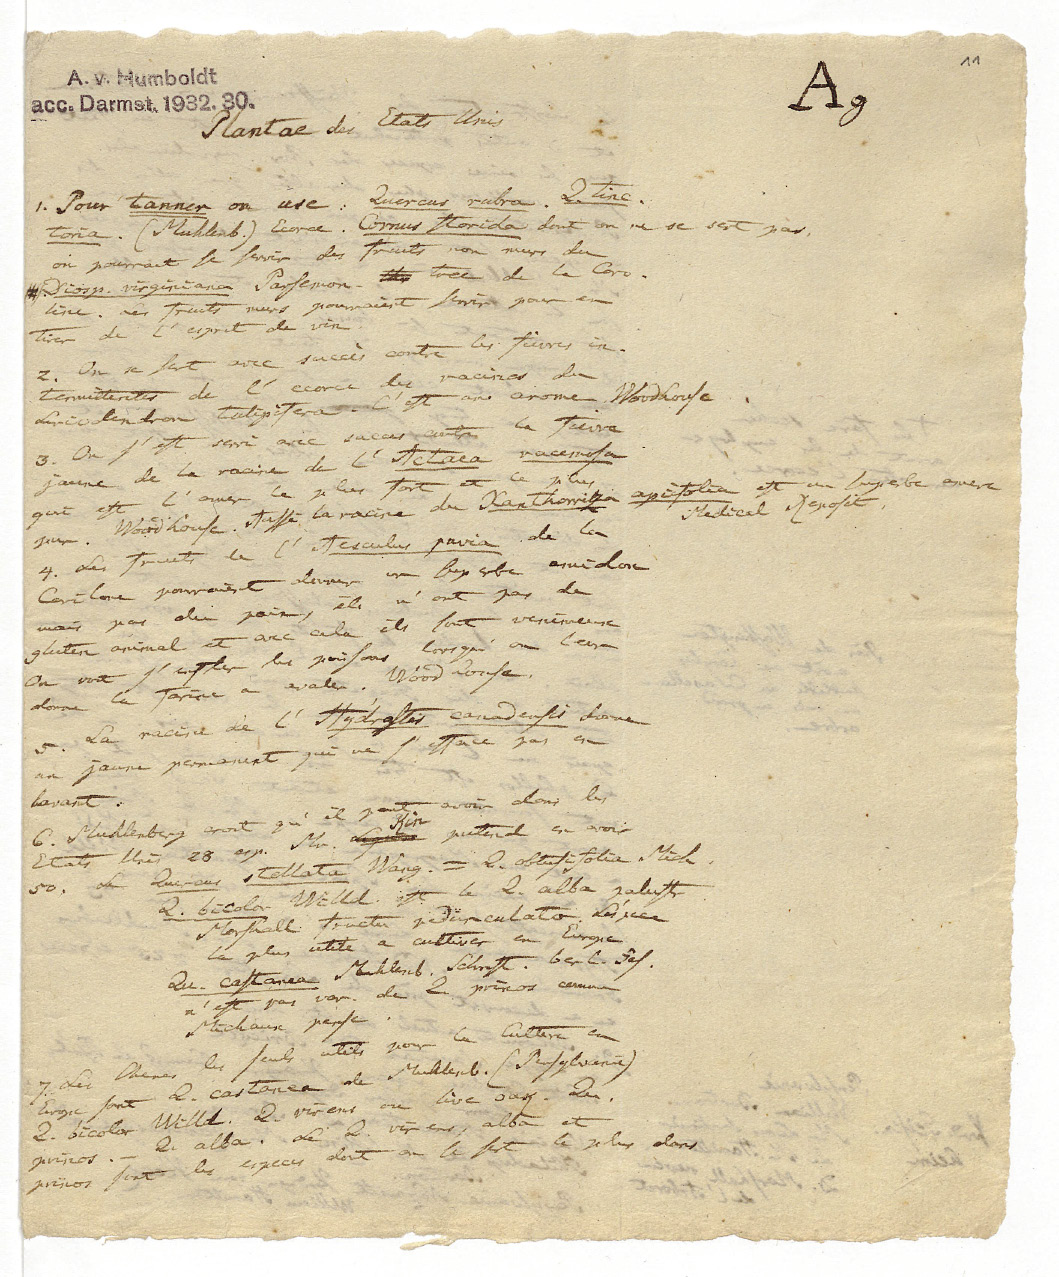 11
Ag
A. v. Humboldt
acc. Darmst. 1932. 30.
Plantae des Etats Unis
1. Pour tanner on use: Quercus rubra. Q. tinc-
toria. (Muhlenb.) Ecorce. Cornus florida dont on ne se sert pas,
on pourrait se servir des fruits non murs du
Diosp. virginiana Parsemon- tree de la Caro-
line. Les fruits murs pourraient servir pour en
tirer de l'esprit de vin
2. On se sert avec succès contre les fievres in-
termittentes de l'ecorce des racines du
Liriodendron tulipifera. C'est un arome Woodhouse.
3. On s'est servi avec succes contre la fievre
jaune de la racine de l'Actaea racemosa
qui est l'amer le plus fort et le plus
pur. Woodhouse. Aussi la racine du Xanthorriza apiifolia est un superbe amere
Medical Reposit.
4. Les fruits de l'Aesculus pavia de la
Caroline pourraient donner un superbe amidon
mais pas du pain, ils n'ont pas de
gluten animal et avec cela ils sont venimeux
On voit s'enfler les poissons lorsqu'on leur
donne la farine a avaler. Woodhouse.
5. La racine de l'Hydrastis canadensis donne
un jaune permanent qui ne s'efface pas en
lavant.
6. Muhlenberg croit qu'il peut avoir dans les
Etats Unis 28 esp. Mr. Kin pretend en avoir
50. Le Quercus stellata Wang. = Q. obtusifolia Mich.
Q. bicolor Willd. est le Q. alba palustr.
Marshall fructu pedunculato. L'espece
la plus utile a cultiver en Europe
Qu. castanea Muhlenb. Schrift. berl. Ges.
n'est pas var. de Q. prinos comme
Michaux pense.
7. Les Chenes les seuls utils pour la Culture en
Europe sont Q. castanea de Muhlenb. (Pensylvanie)
Q. bicolor Willd. Q. virens ou live oay. Qu.
prinos. — Q. alba. Le Q. virens, alba et
prinos sont les especes dont on se sert le plus dans